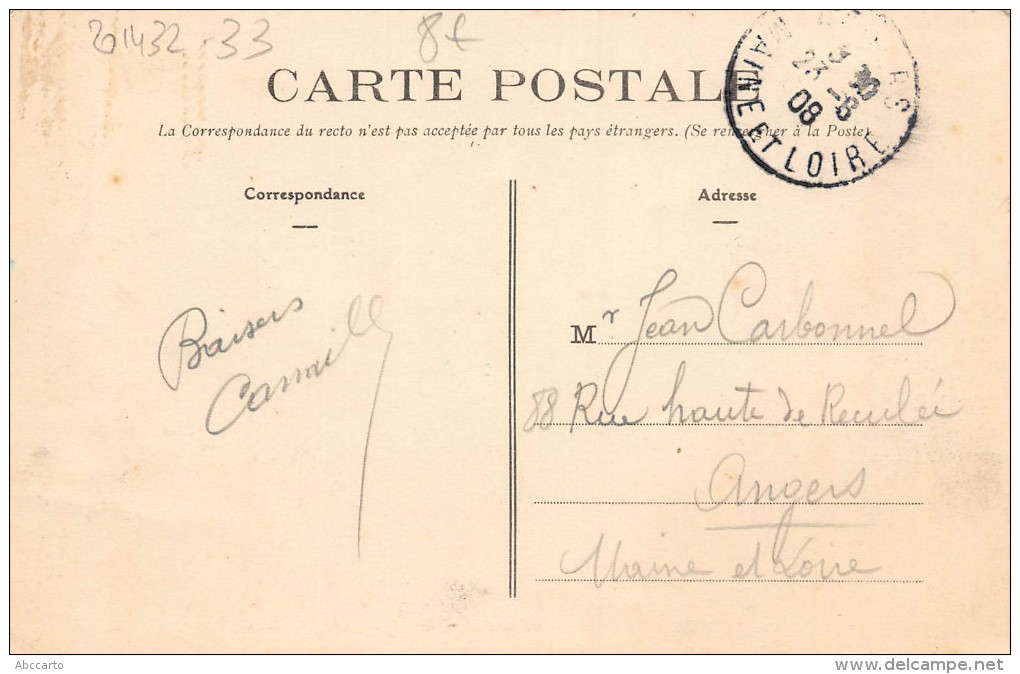 201432-33
8f
CARTE POSTALE
La Correspondance du recto n'est pas acceptée par tous les pays étrangers. (Se renseigner à la Poste)
MAINE ET LOIRE
23
08
Correspondance
Adresse
Baisers
Camille
Mr Jean Carbonnel
88 Rue haute de Reculée
Angers
Maine et Loire
Abccarto
www.delcampe.net